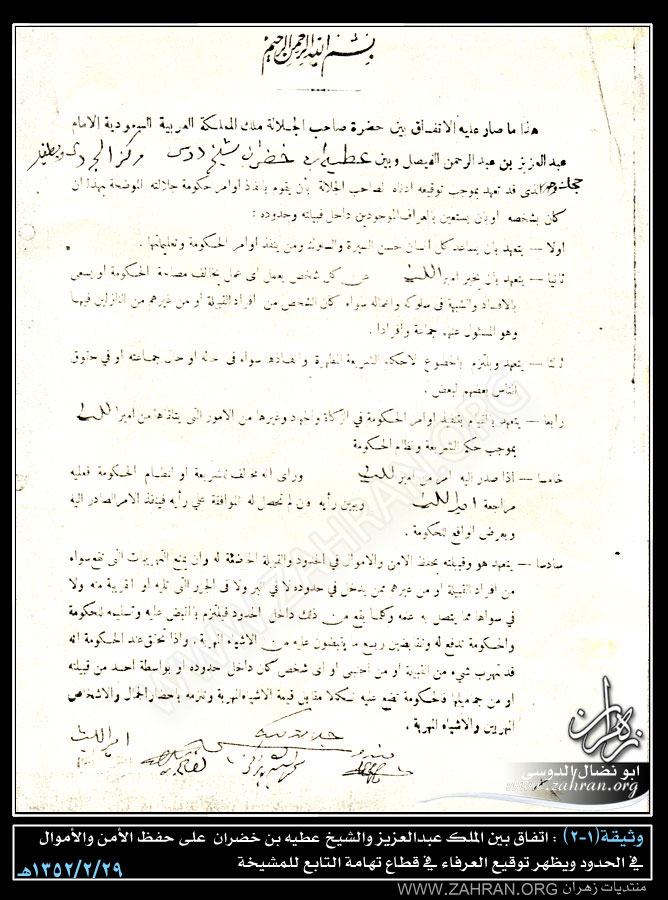 بسم الله الرحمن الرحيم
هذا ما صار عليه الاتفاق بين حضرة صاحب الجلالة ملك المملكة العربية السعودية الامام
عبد العزيز بن عبد الرحمن الفيصل وبين عطية ابن خضران شيخ دوس مركز الجرداء
الذى قد تعهد بموجب توقيعه ادناه لصاحب الجلالة بأن يقوم بانفاذ اوامر حكومة جلالته الموضحة بهذا ان
كان بشخصه او بان يستعين بالعراف الموجودين داخل قبيلته وحدوده :
اولا — يتعهد بان يساعد كل انسان حسن السيرة والسلوك ومن ينفذ اوامر الحكومة وتعليماتها .
ثانيا — يتعهد بان يخبر امير الليث عن كل شخص يعمل اى عمل يخالف مصلحة الحكومة او يسعى
بالافساد والشبهة فى سلوكه واعماله سواء كان الشخص من افراد القبيلة او من غيرهم من النازلين فيها
وهو المسئول عنهم جماعة وافرادا .
ثالثا — يتعهد ويلتزم بالخضوع لاحكام الشريعة المطهرة وانفاذها سواء فى حاله او حال جماعته او فى حقوق
الناس بعضهم لبعض .
رابعا — يتعهد بالقيام بتنفيذ اوامر الحكومة في الزكاة والجهاد وغيرها من الامور التى يتلقاها من امير الليث
بموجب حكم الشريعة ونظام الحكومة
خامسا — اذا صدر اليه امر من امير الليث وراى انه مخالف للشريعة او لنظام الحكومة فعليه
مراجعة امير الليث ويبين رأيه وان لم تحصل له الموافقة علي رأيه فينفذ الامر الصادر اليه
ويعرض الواقع للحكومة .
سادسا — يتعهد هو وقبيلته بحفظ الامن والاموال في الحدود والقبيلة الخاضعة له وان يمنع التهريبات التى تقع سواء
من افراد القبيلة او من غيرهم ممن يدخل في حدوده لا فى البر ولا فى الجزر التى تليه او القريبة منه ولا
في سواها مما يتصل به علمه وكلما يقع من ذلك داخل الحدود فيلتزم بالقبض عليه وتسليمه للحكومة
والحكومة تدفع له ولمن يقبضون ربع ما يقبضون عليه من الاشياء المهربة . واذا تحقق عند الحكومة انه
قد تهرب شيء من القبيلة او من اجنبى او اى شخص كان داخل حدوده او بواسطة احد من قبيلته
او من جماميلها فالحكومة تضع عليه نكالا مقابل قيمة الاشياء المهربة وتلزمه باحضار الجمال والاشخاص
المهربين والاشياء المهربة .
امير الليث
زهران
ابو نضال الدوسي
www.zahran.org
WWW.ZAHRAN.ORG
وثيقة(١-٢) : اتفاق بين الملك عبدالعزيز والشيخ عطيه بن خضران على حفظ الأمن والأموال
في الحدود ويظهر توقيع العرفاء في قطاع تهامة التابع للمشيخة
١٣٥٢/٢/٢٩هـ
منتديات زهران WWW.ZAHRAN.ORG